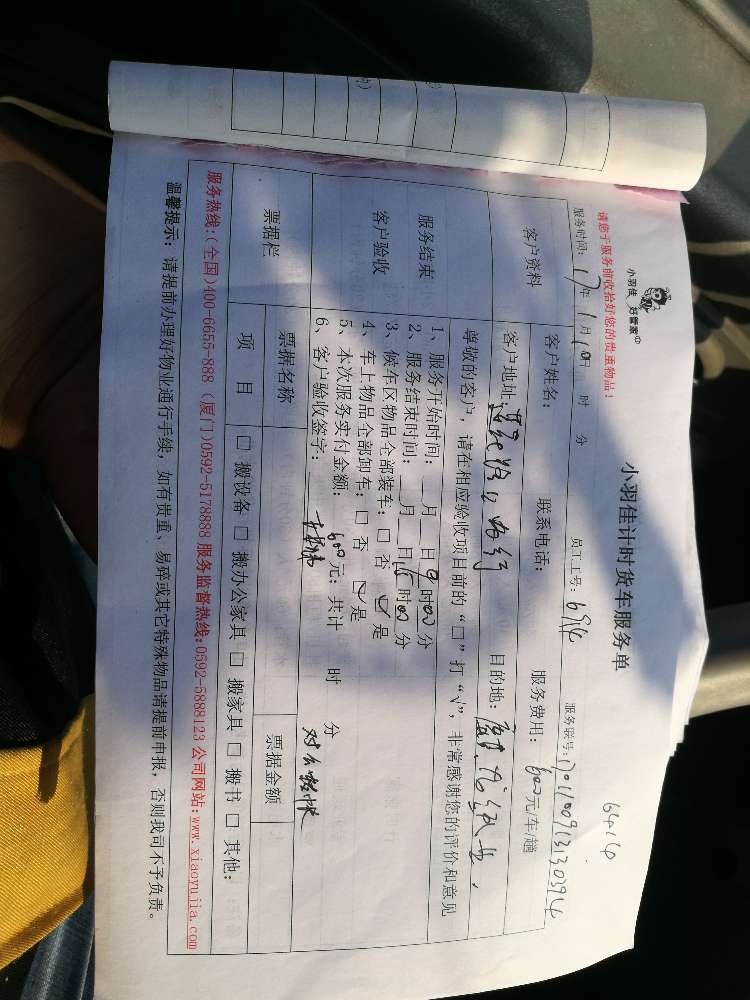 小羽佳 好管家
小羽佳计时货车服务单
6414
请您于服务前收拾好您的贵重物品！
服务时间：17年1月10日 时 分 员工工号：6914 服务联号：
客户资料 客户姓名： 联系电话： 服务费用：600元/车/趟
客户地址： 目的地：
服务结束 客户验收
尊敬的客户，请在相应验收项目前的“□”打“√”，非常感谢您的评价和意见
1、服务开始时间： 月 日9时00分
2、服务结束时间： 月 日15时00分
3、候车区物品全部装车：□否 ☑是
4、车上物品全部卸车：□否 ☑是
5、本次服务实付金额：600元；共计 时 分
6、客户验收签字： 对公转账
票据栏 票据名称 票据金额
项目 □搬设备 □搬办公家具 □搬家具 □搬书 □其他：
服务热线：(全国)400-6655-888 (厦门)0592-5178888 服务监督热线:0592-5888123 公司网站:www.xiaoyujia.com
温馨提示：请提前办理好物业通行手续，如有贵重、易碎或其它特殊物品请提前申报，否则我司不予负责。